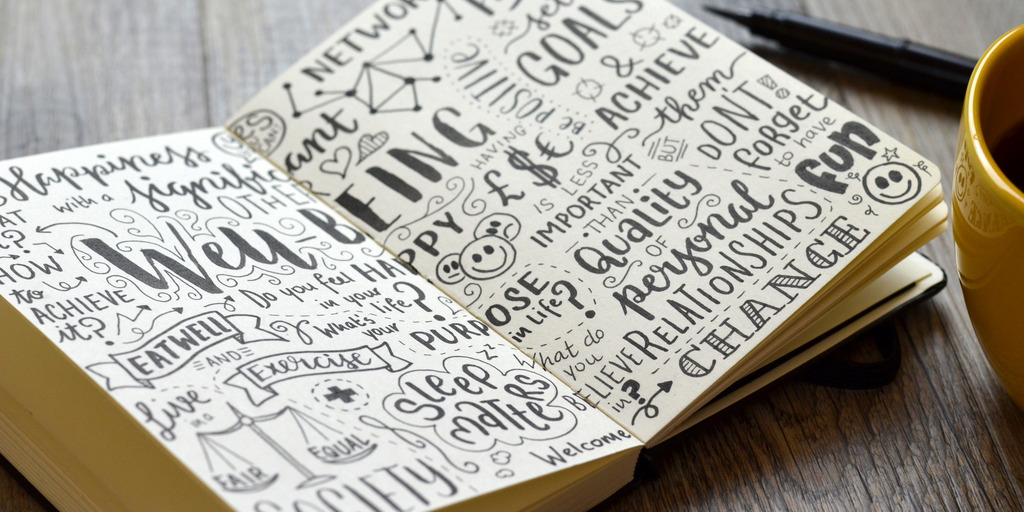 NETWORK
set
GOALS
& ACHIEVE
them
BUT
DON'T
forget
to have
fun
HAVING
£ $ €
IS LESS
IMPORTANT
THAN
Quality
OF
personal
RELATIONSHIPS
BE POSITIVE
YES
Happiness
with a significant
OTHER
WELL-BEING
HOW
to
ACHIEVE
it?
Do you feel HAPPY
in your
life?
What's
your
PURPOSE
in life?
EAT WELL
AND
Exercise
Sleep
matters
z z
What do
you
BELIEVE
in?
Welcome
CHANGE
live
in a
FAIR
EQUAL
SOCIETY